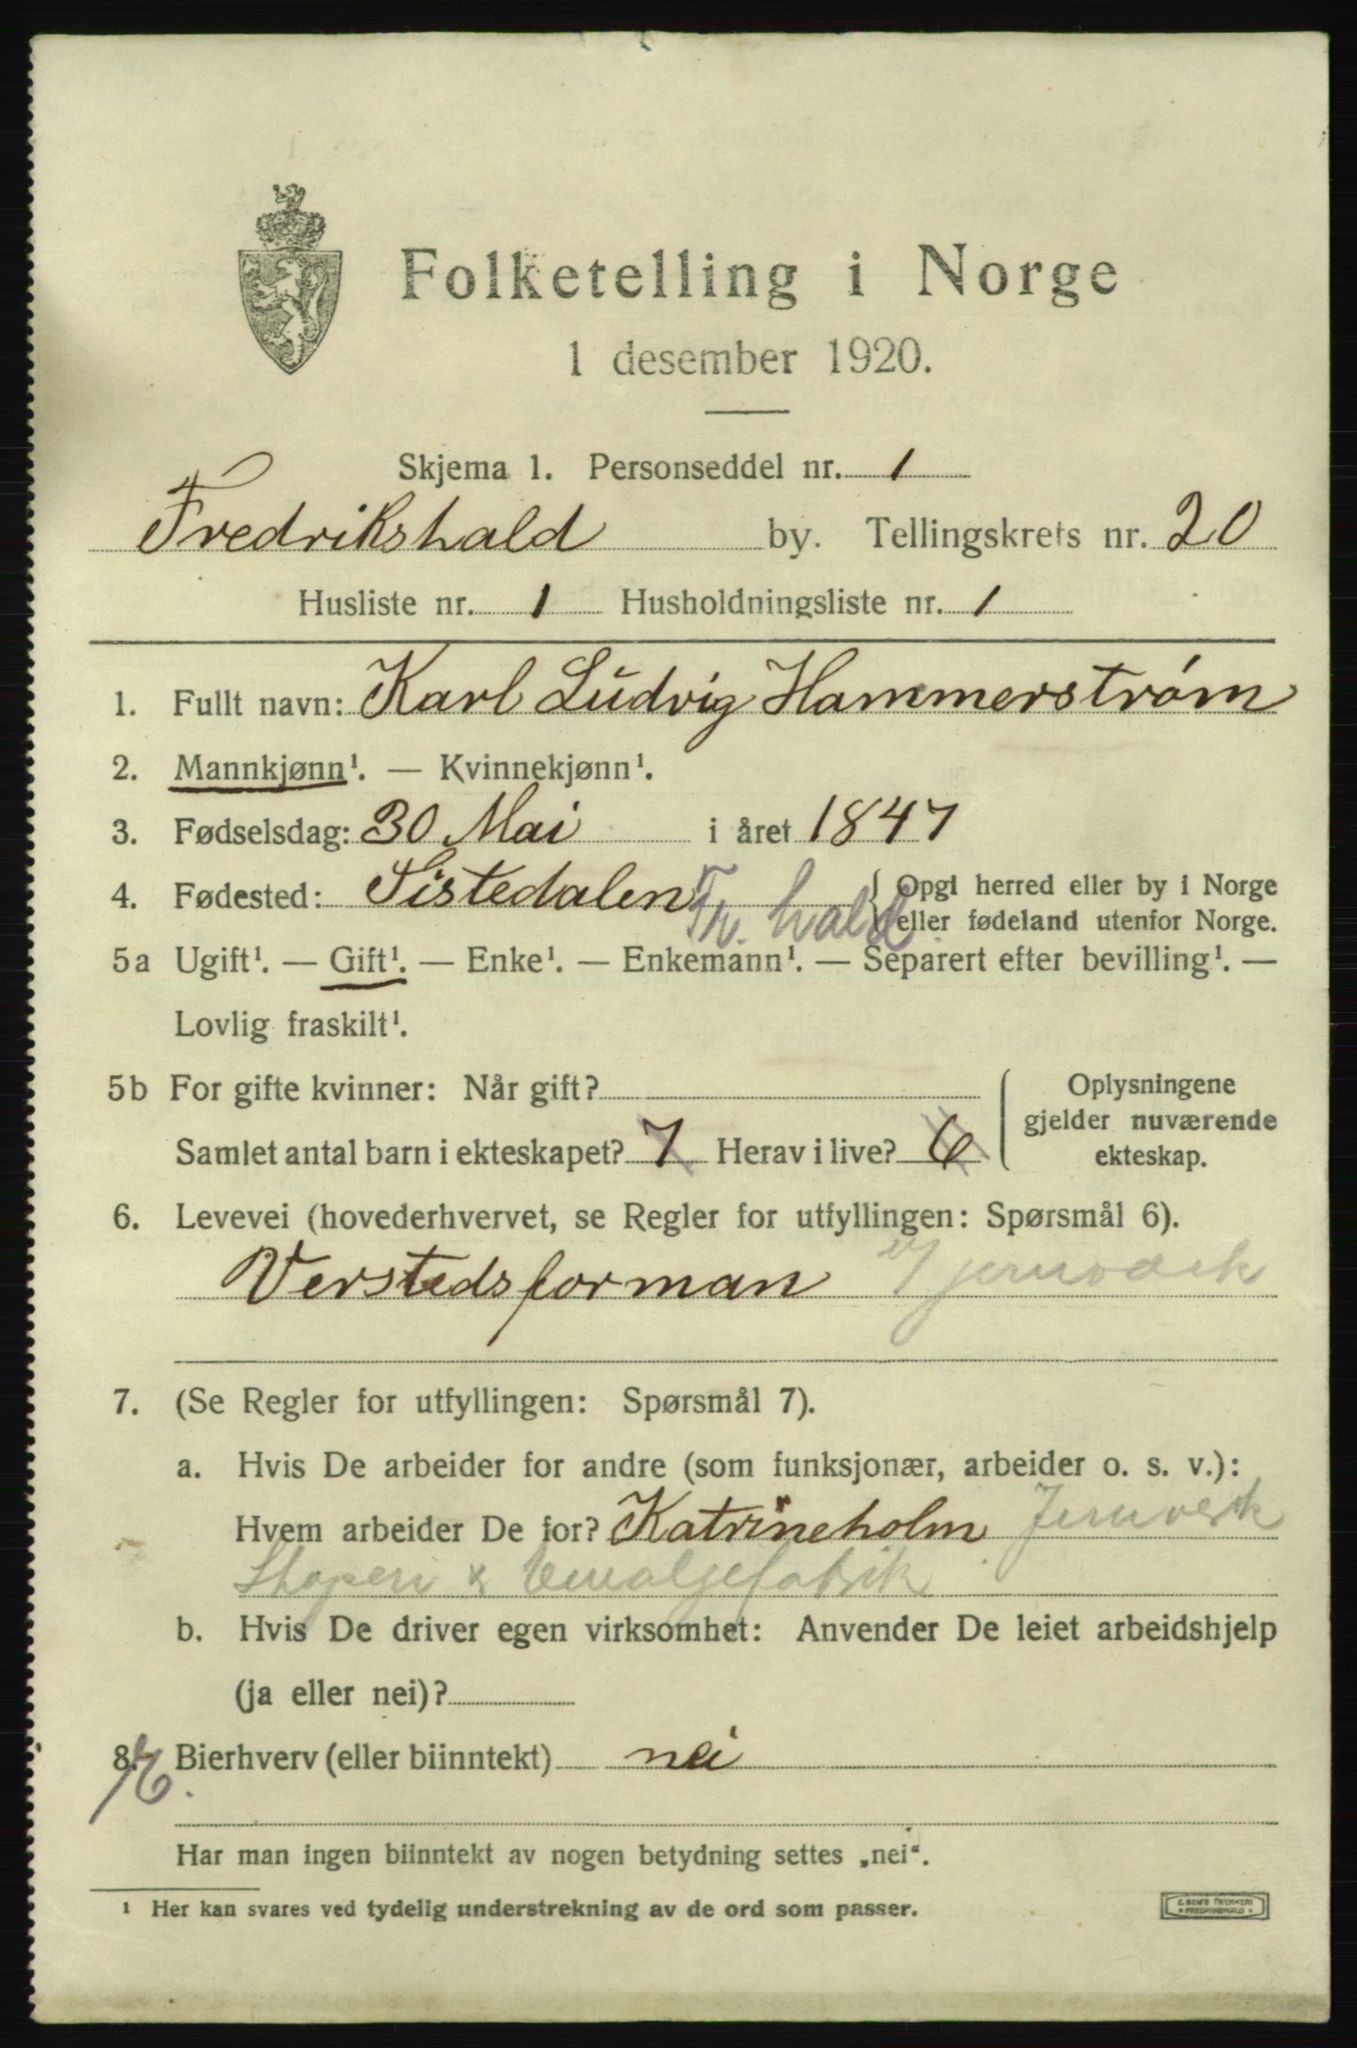 Folketelling i Norge
1 desember 1920.
Skjema 1. Personseddel nr. 1
Fredrikshald by. Tellingskrets nr. 20
Husliste nr. 1 Husholdningsliste nr. 1
1. Fullt navn: Karl Ludvig Hammerstrøm
2. Mannkjønn¹. — Kvinnekjønn¹.
3. Fødselsdag: 30 Mai i året 1847
4. Fødested: Tistedalen { Opgi herred eller by i Norge
Fr. hald eller fødeland utenfor Norge.
5a Ugift¹. — Gift¹. — Enke¹. — Enkemann¹. — Separert efter bevilling¹. —
Lovlig fraskilt¹.
5b For gifte kvinner: Når gift?
Samlet antal barn i ekteskapet? 7 Herav i live? 6
Oplysningene
gjelder nuværende
ekteskap.
6. Levevei (hovederhvervet, se Regler for utfyllingen: Spørsmål 6).
Verstedsforman v/ jernverk
7. (Se Regler for utfyllingen: Spørsmål 7).
a. Hvis De arbeider for andre (som funksjonær, arbeider o. s. v.):
Hvem arbeider De for? Katrineholm Jernverk
Støperi & Emaljefabrik
b. Hvis De driver egen virksomhet: Anvender De leiet arbeidshjelp
(ja eller nei)?
8. Bierhverv (eller biinntekt) nei
Har man ingen biinntekt av nogen betydning settes „nei“.
¹ Her kan svares ved tydelig understrekning av de ord som passer.